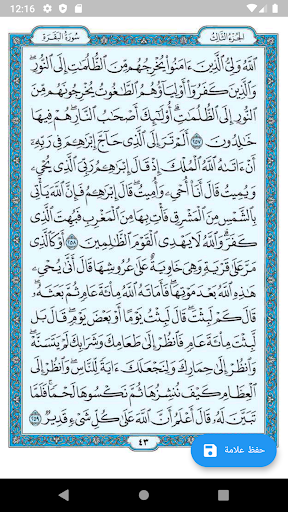 12:16
سُورَةُ الْبَقَرَةِ
الجُزءُ الثَّالِثُ
اللَّهُ وَلِيُّ الَّذِينَ ءَامَنُوا يُخْرِجُهُم مِّنَ الظُّلُمَاتِ إِلَى النُّورِ
وَالَّذِينَ كَفَرُوا أَوْلِيَاؤُهُمُ الطَّاغُوتُ يُخْرِجُونَهُم مِّنَ
النُّورِ إِلَى الظُّلُمَاتِ أُولَئِكَ أَصْحَابُ النَّارِ هُمْ فِيهَا
خَالِدُونَ ٢٥٧ أَلَمْ تَرَ إِلَى الَّذِي حَاجَّ إِبْرَاهِمَ فِي رَبِّهِ
أَنْ ءَاتَاهُ اللَّهُ الْمُلْكَ إِذْ قَالَ إِبْرَاهِمُ رَبِّيَ الَّذِي يُحْيِي
وَيُمِيتُ قَالَ أَنَا أُحْيِي وَأُمِيتُ قَالَ إِبْرَاهِمُ فَإِنَّ اللَّهَ يَأْتِي
بِالشَّمْسِ مِنَ الْمَشْرِقِ فَأْتِ بِهَا مِنَ الْمَغْرِبِ فَبُهِتَ الَّذِي
كَفَرَ وَاللَّهُ لَا يَهْدِي الْقَوْمَ الظَّالِمِينَ ٢٥٨ أَوْ كَالَّذِي
مَرَّ عَلَى قَرْيَةٍ وَهِيَ خَاوِيَةٌ عَلَى عُرُوشِهَا قَالَ أَنَّى يُحْيِي
هَذِهِ اللَّهُ بَعْدَ مَوْتِهَا فَأَمَاتَهُ اللَّهُ مِائَةَ عَامٍ ثُمَّ بَعَثَهُ
قَالَ كَمْ لَبِثْتَ قَالَ لَبِثْتُ يَوْمًا أَوْ بَعْضَ يَوْمٍ قَالَ بَل
لَّبِثْتَ مِائَةَ عَامٍ فَانظُرْ إِلَى طَعَامِكَ وَشَرَابِكَ لَمْ يَتَسَنَّهْ
وَانظُرْ إِلَى حِمَارِكَ وَلِنَجْعَلَكَ ءَايَةً لِّلنَّاسِ وَانظُرْ إِلَى
الْعِظَامِ كَيْفَ نُنشِزُهَا ثُمَّ نَكْسُوهَا لَحْمًا فَلَمَّا
تَبَيَّنَ لَهُ قَالَ أَعْلَمُ أَنَّ اللَّهَ عَلَى كُلِّ شَيْءٍ قَدِيرٌ ٢٥٩
٤٣
حفظ علامة